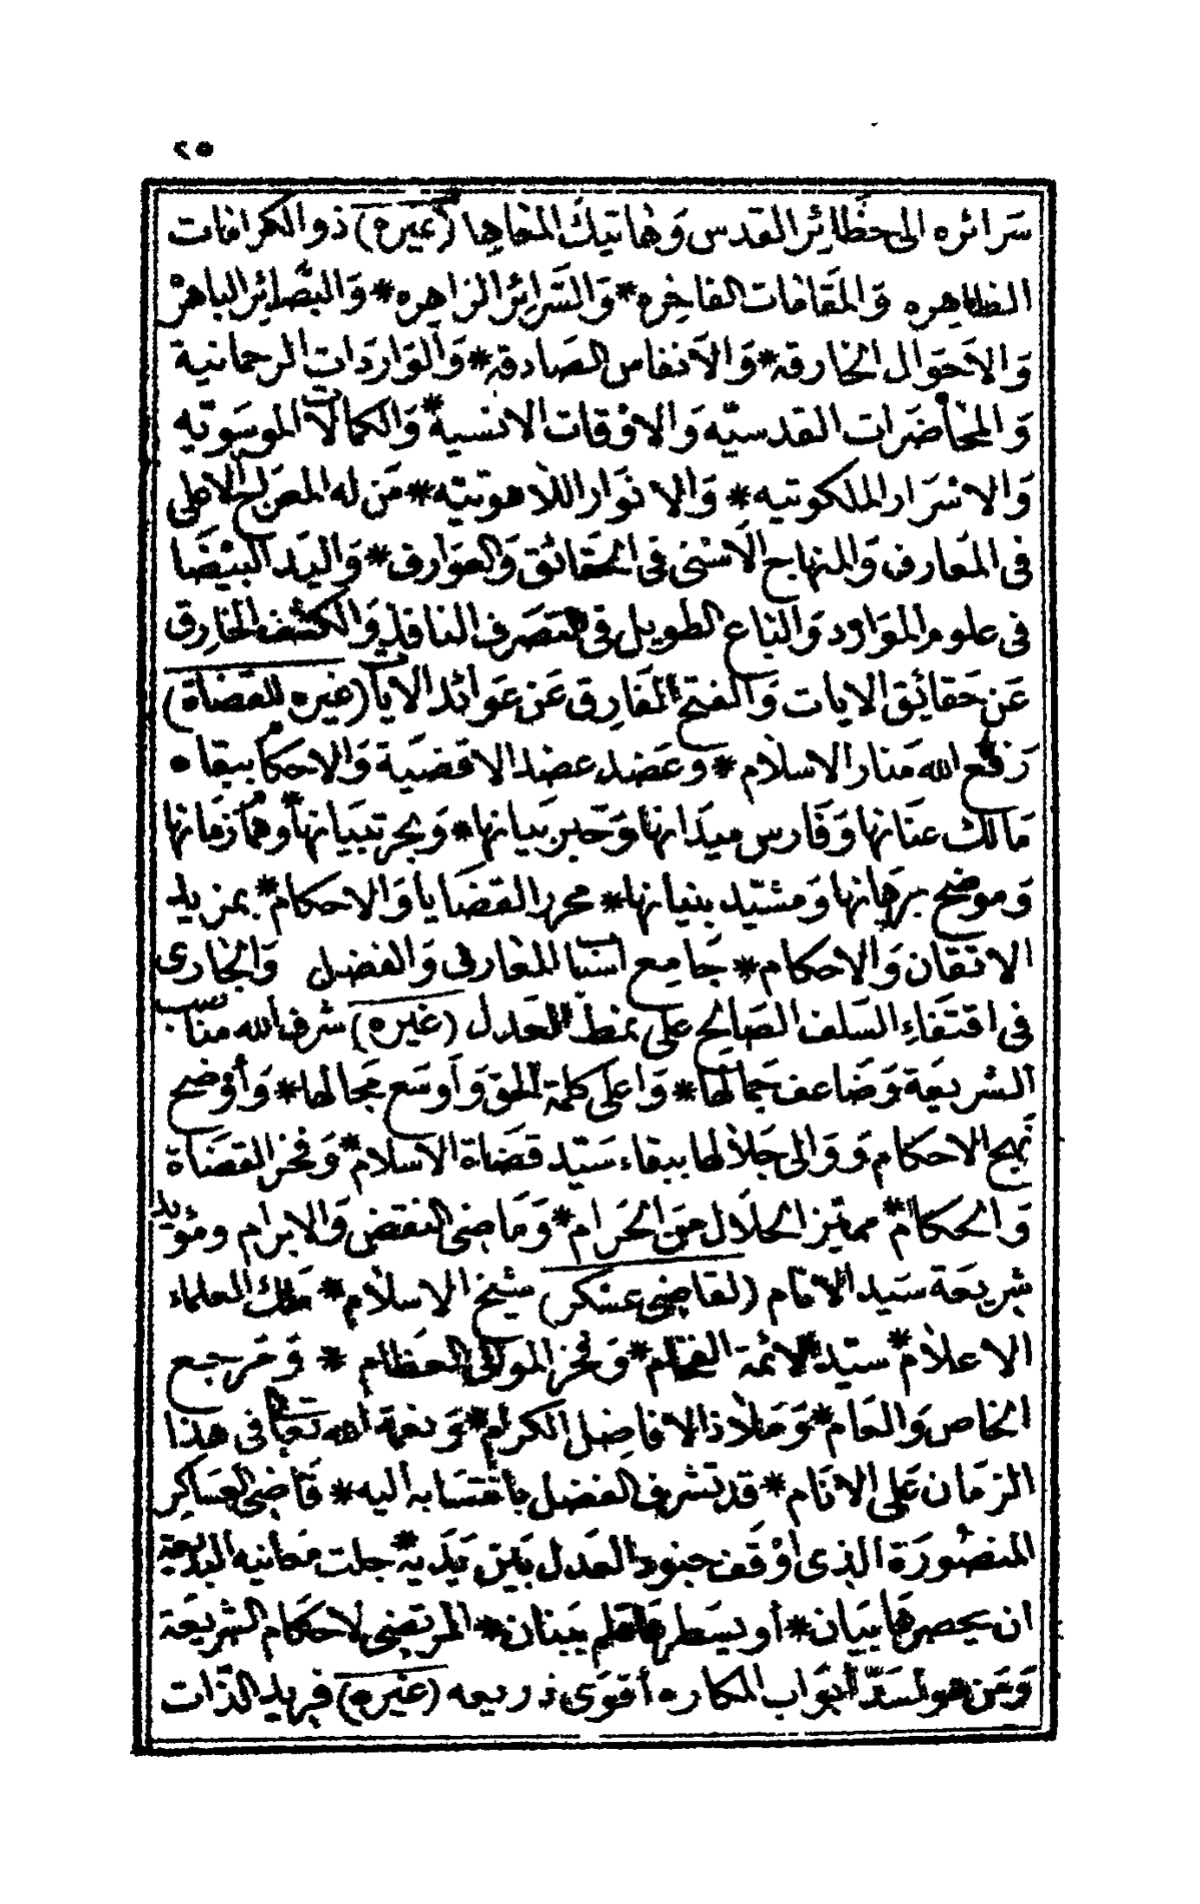 ٢٥
سَرائره الى حظَائِر القدس وَهاتيك المعاهد (غيره) ذو الكرامات
الظاهره وَالمقامَات الفاخره * وَالسَرائِر الزاهره * وَالبصَائِر الباهرْ
وَالاحَوَال الخارقه * وَالاَنفاس الصَادقه * وَالوَاردَات الرحمانية
وَالمحَاضَرات القدسيّه وَالاوْقات الانسية * وَالكمالات الموسَويّه
وَالاسْرَار الملكوتيه * وَالانوَار اللاهوتيّه * مَن له المعرَاج الاعلى
فى المعَارف وَالمنهاج الاَسْنى فى الحقَائق وَالعوَارف * وَاليَد البيْضَا
فى علوم الموَارد وَالبَاع الطويل فى التصَرف النافذ وَالكشف الخارق
عَن حَقائق الايات وَالفتح الفَارِق عَن عوَائد الايات (غيره للقضاة)
رَفع الله مَنار الاسلام * وعَضد عضد الاقضيَة وَالاحكام ببقاء
مَالك عنَانها وَفَارس ميدَانها وَحَبر بَيانها * وَبحر تبيَانها * وهمام زمَانها
وَموضح برهَانها وَمشيّد بنيانها * محرر القضَايا وَالاحكام * بمزيد
الاتقان وَالاحكام * جَامِع اسبَاب المعَارف وَالفضل وَالجارى
فى اقتفَاءِ السَلف الصَالح على نمط العَدل (غيره) شرف الله مناسب
الشريعَة وَضَاعف جَمالهَا * وَاعلى كلمة الحق وَاَوسَع مجَالها * وَأوْضح
نهج الاحكام وَوَالى جَلالها ببقاء سَيّد قضَاة الاسلام * وَفخر القضَاة
وَالحكام * مميّز الحَلاَل مِن الحَرام * وَمَاضى النقض وَالابرام ومؤيد
شريعَة سَيد الاَنام (لقاضى عسْكر) شيخ الاسلام * مَلك العلماء
الاعلام * سيّد الائمة الفخام * وَفخر الموَالى العظام * وَمَرجع
الخاص وَالعَام * وَمَلاذ الافاضِل الكرام * وَنعمة الله تعَالى فى هذا
الزمَان عَلى الانَام * قد تشرف الفضل بانتسَابه اليه * قَاضى العسَاكر
المنصُورَة الذى أوْقَف جنود العَدل بَيْن يَدَيْه * جلت مَعَانيه البديعة
ان يحصرهَا بيَان * أو يسَطرهَا قلم ببنان * المرتضى لاحكَام الشريعَة
وَمَن هو لسَدّ أبوَاب المكاره أقوَى ذريعه (غيره) فريد الذّات